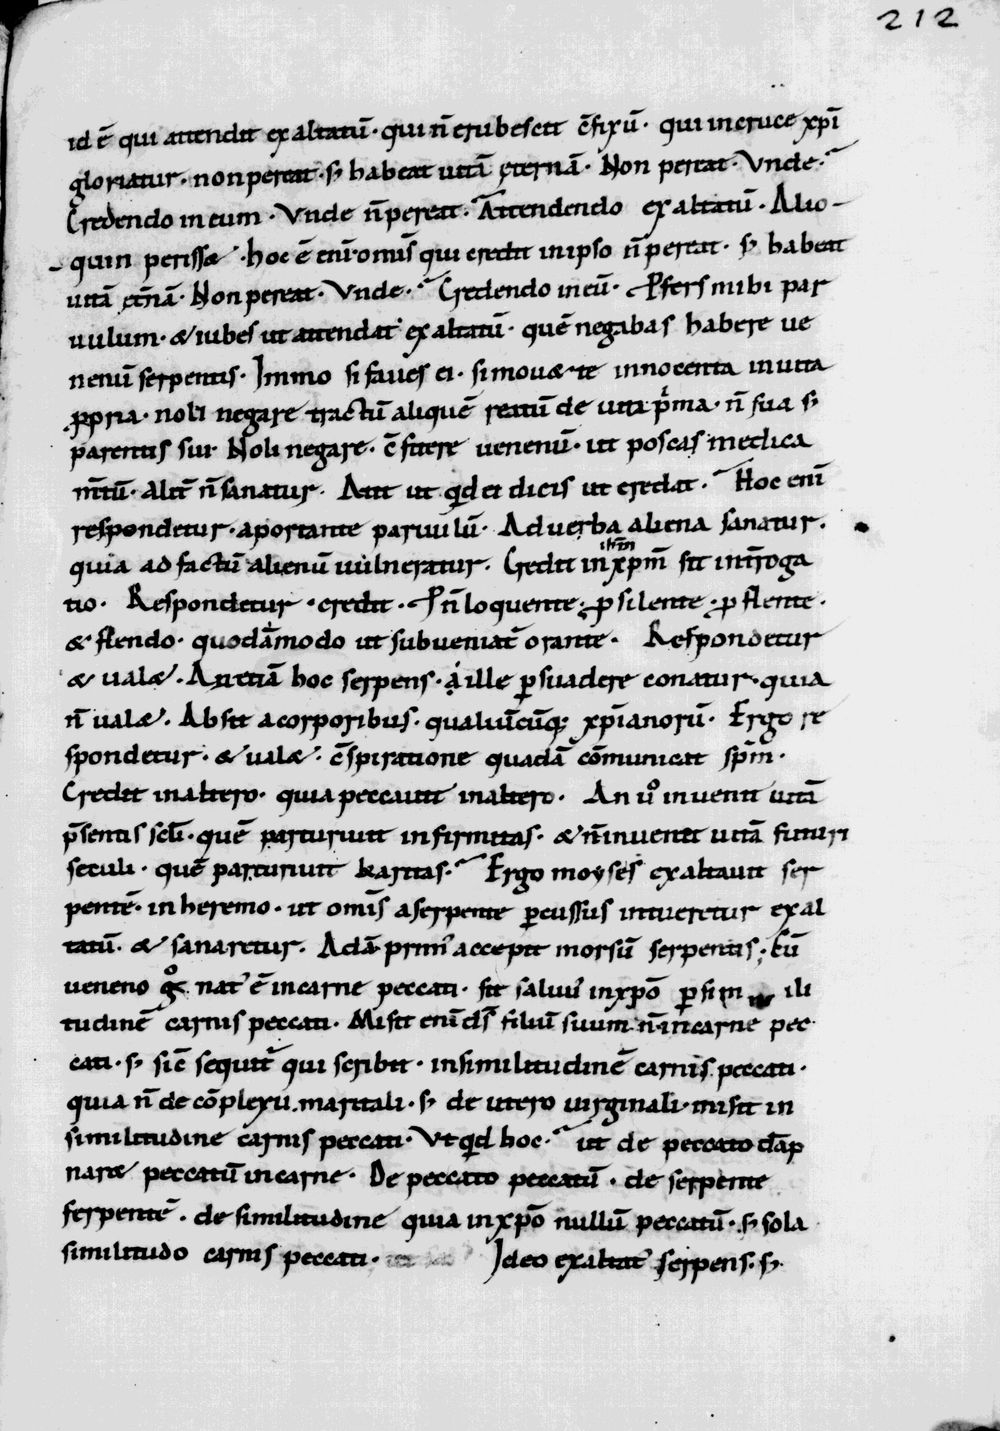 212
id ē qui attendit exaltatū· qui n̄ erubescit c̄fixū· qui in cruce xp̄i
gloriatur· non pereat· s; habeat uitā ęternā· Non pereat· Vnde·
Credendo in eum· Vnde n̄ pereat· Attendendo exaltatū· Alio-
quin perisset· hoc ē eni omīs qui credit in ipso n̄ pereat· s; habeat
uitā ęt̄nā· Non pereat· Vnde· Credendo in eū· P̄fers mihi par
uulum· & iubes ut attendat exaltatū· quē negabas habere ue
nenū serpentis· Immo si faues ei· si mouet te innocentia in uita
ꝓpria· noli negare tractū aliquē reatū de uita p̄ma· n̄ sua s;
parentis sui Noli negare· c̄fitere uenenū· ut poscas medica
m̄tū· alit̄ n̄ sanatur· Aut ut qd ei dicis ut credat· Hoc eni
respondetur· a portante paruulū· Ad uerba aliena sanatur·
quia ad factū alienū uulneratur· Credit in xp̄m ih̄m fit int̄roga
tio· Respondetur· credit· P n̄ loquente· ꝓ silente· ꝓ flente·
& flendo· quodāmodo ut subueniat̄ orante· Respondetur
& ualet· An etiā hoc serpens· a ille ꝑsuadere conatur· quia
n̄ ualet· Absit a corporibus· qualiūcūq; xp̄ianorū· Ergo re
spondetur· & ualet· c̄spiratione quadā cōmunicat sp̄m·
Credit in altero· quia peccauit in altero· An uo inuenit uitā
p̄sentis scl̄i· quē parturiuit infirmitas· & n̄ inuenit uitā futuri
seculi· quē parturiuit karitas· Ergo moyses exaltauit ser
pentē· in heremo· ut omīs a serpente ꝑcussus intueretur exal
tatū· & sanaretur· Adā prim' accepit morsū serpentis· cū
ueneno go nat' ē in carne peccati· fit saluus in xp̄o ꝑ sim ili
tudinē carnis peccati· Misit eni ds̄ filiū suum n̄ in carne pec
cati· s; sic̄ sequit̄ qui scribit· in similitudinē carnis peccati·
quia n̄ de cōplexu maritali· s; de utero uirginali· misit in
similitudine carnis peccati· Vt qd hoc· ut de peccato dāp
naret peccatū in carne· De peccato peccatū· de serpente
serpentē· de similitudine quia in xp̄o nullū peccatū· s; sola
similitudo carnis peccati· Ideo exaltat' serpens· s;